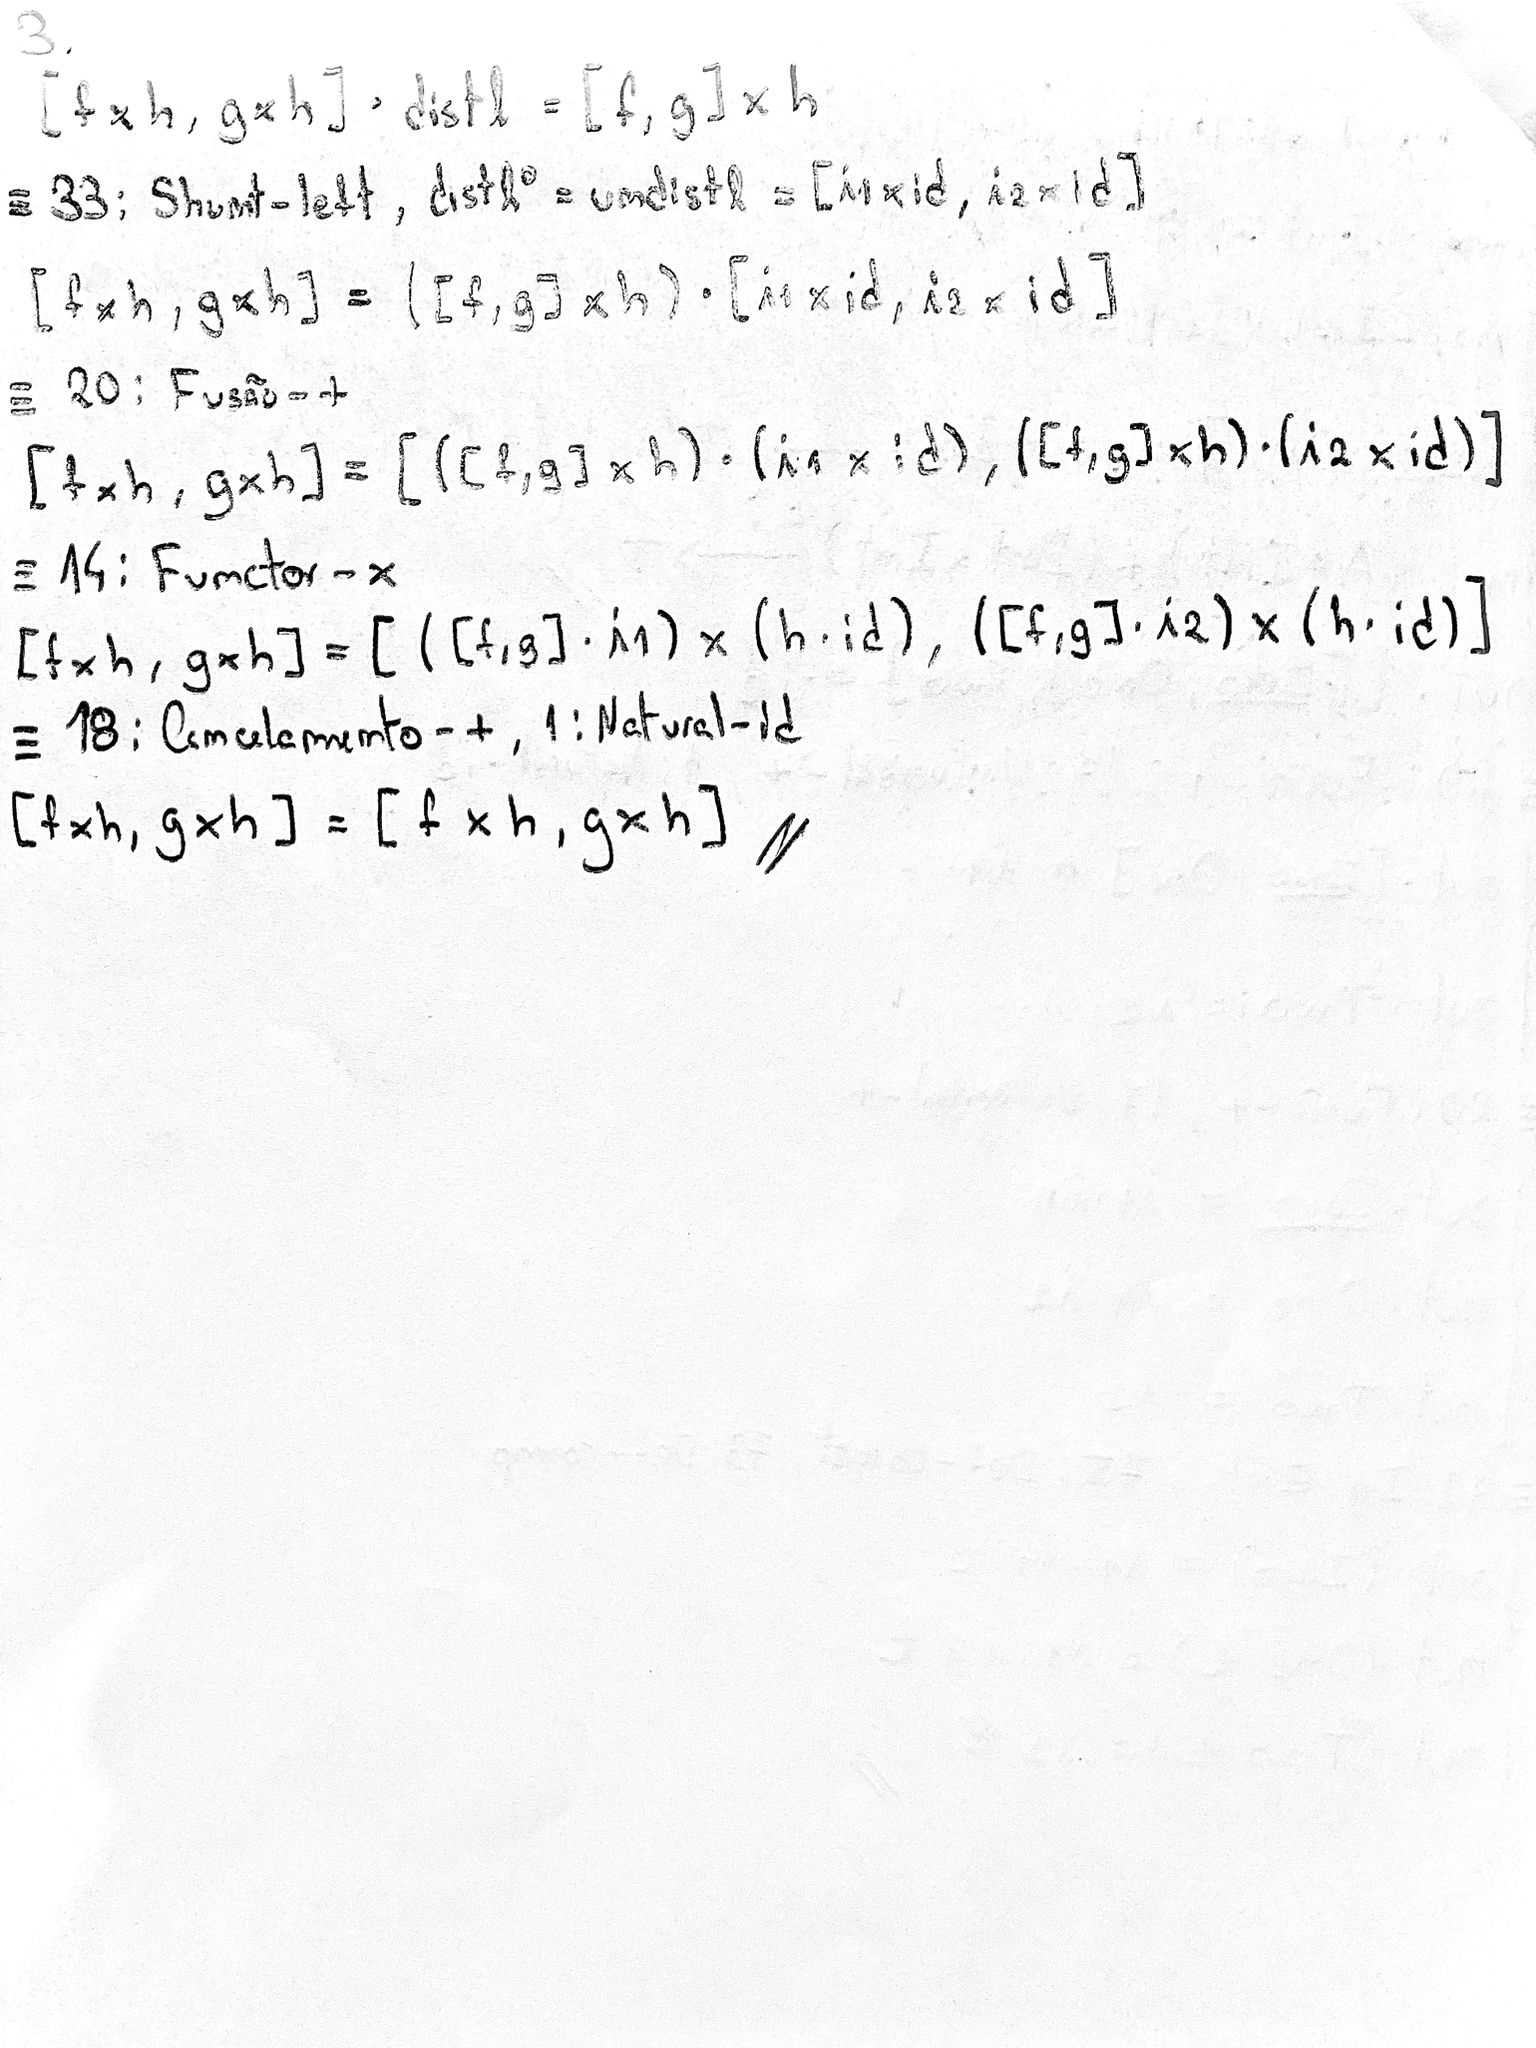 3.
[f×h, g×h] · distl = [f, g] × h
≡ 33: Shunt-left, distl° = undistl = [i1×id, i2×id]
[f×h, g×h] = ([f,g] × h) · [i1×id, i2×id]
≡ 20: Fusão-+
[f×h, g×h] = [([f,g] × h) · (i1 × id), ([f,g] × h) · (i2 × id)]
≡ 14: Functor-×
[f×h, g×h] = [([f,g] · i1) × (h · id), ([f,g] · i2) × (h · id)]
≡ 18: Cancelamento-+, 1: Natural-id
[f×h, g×h] = [f × h, g×h] //